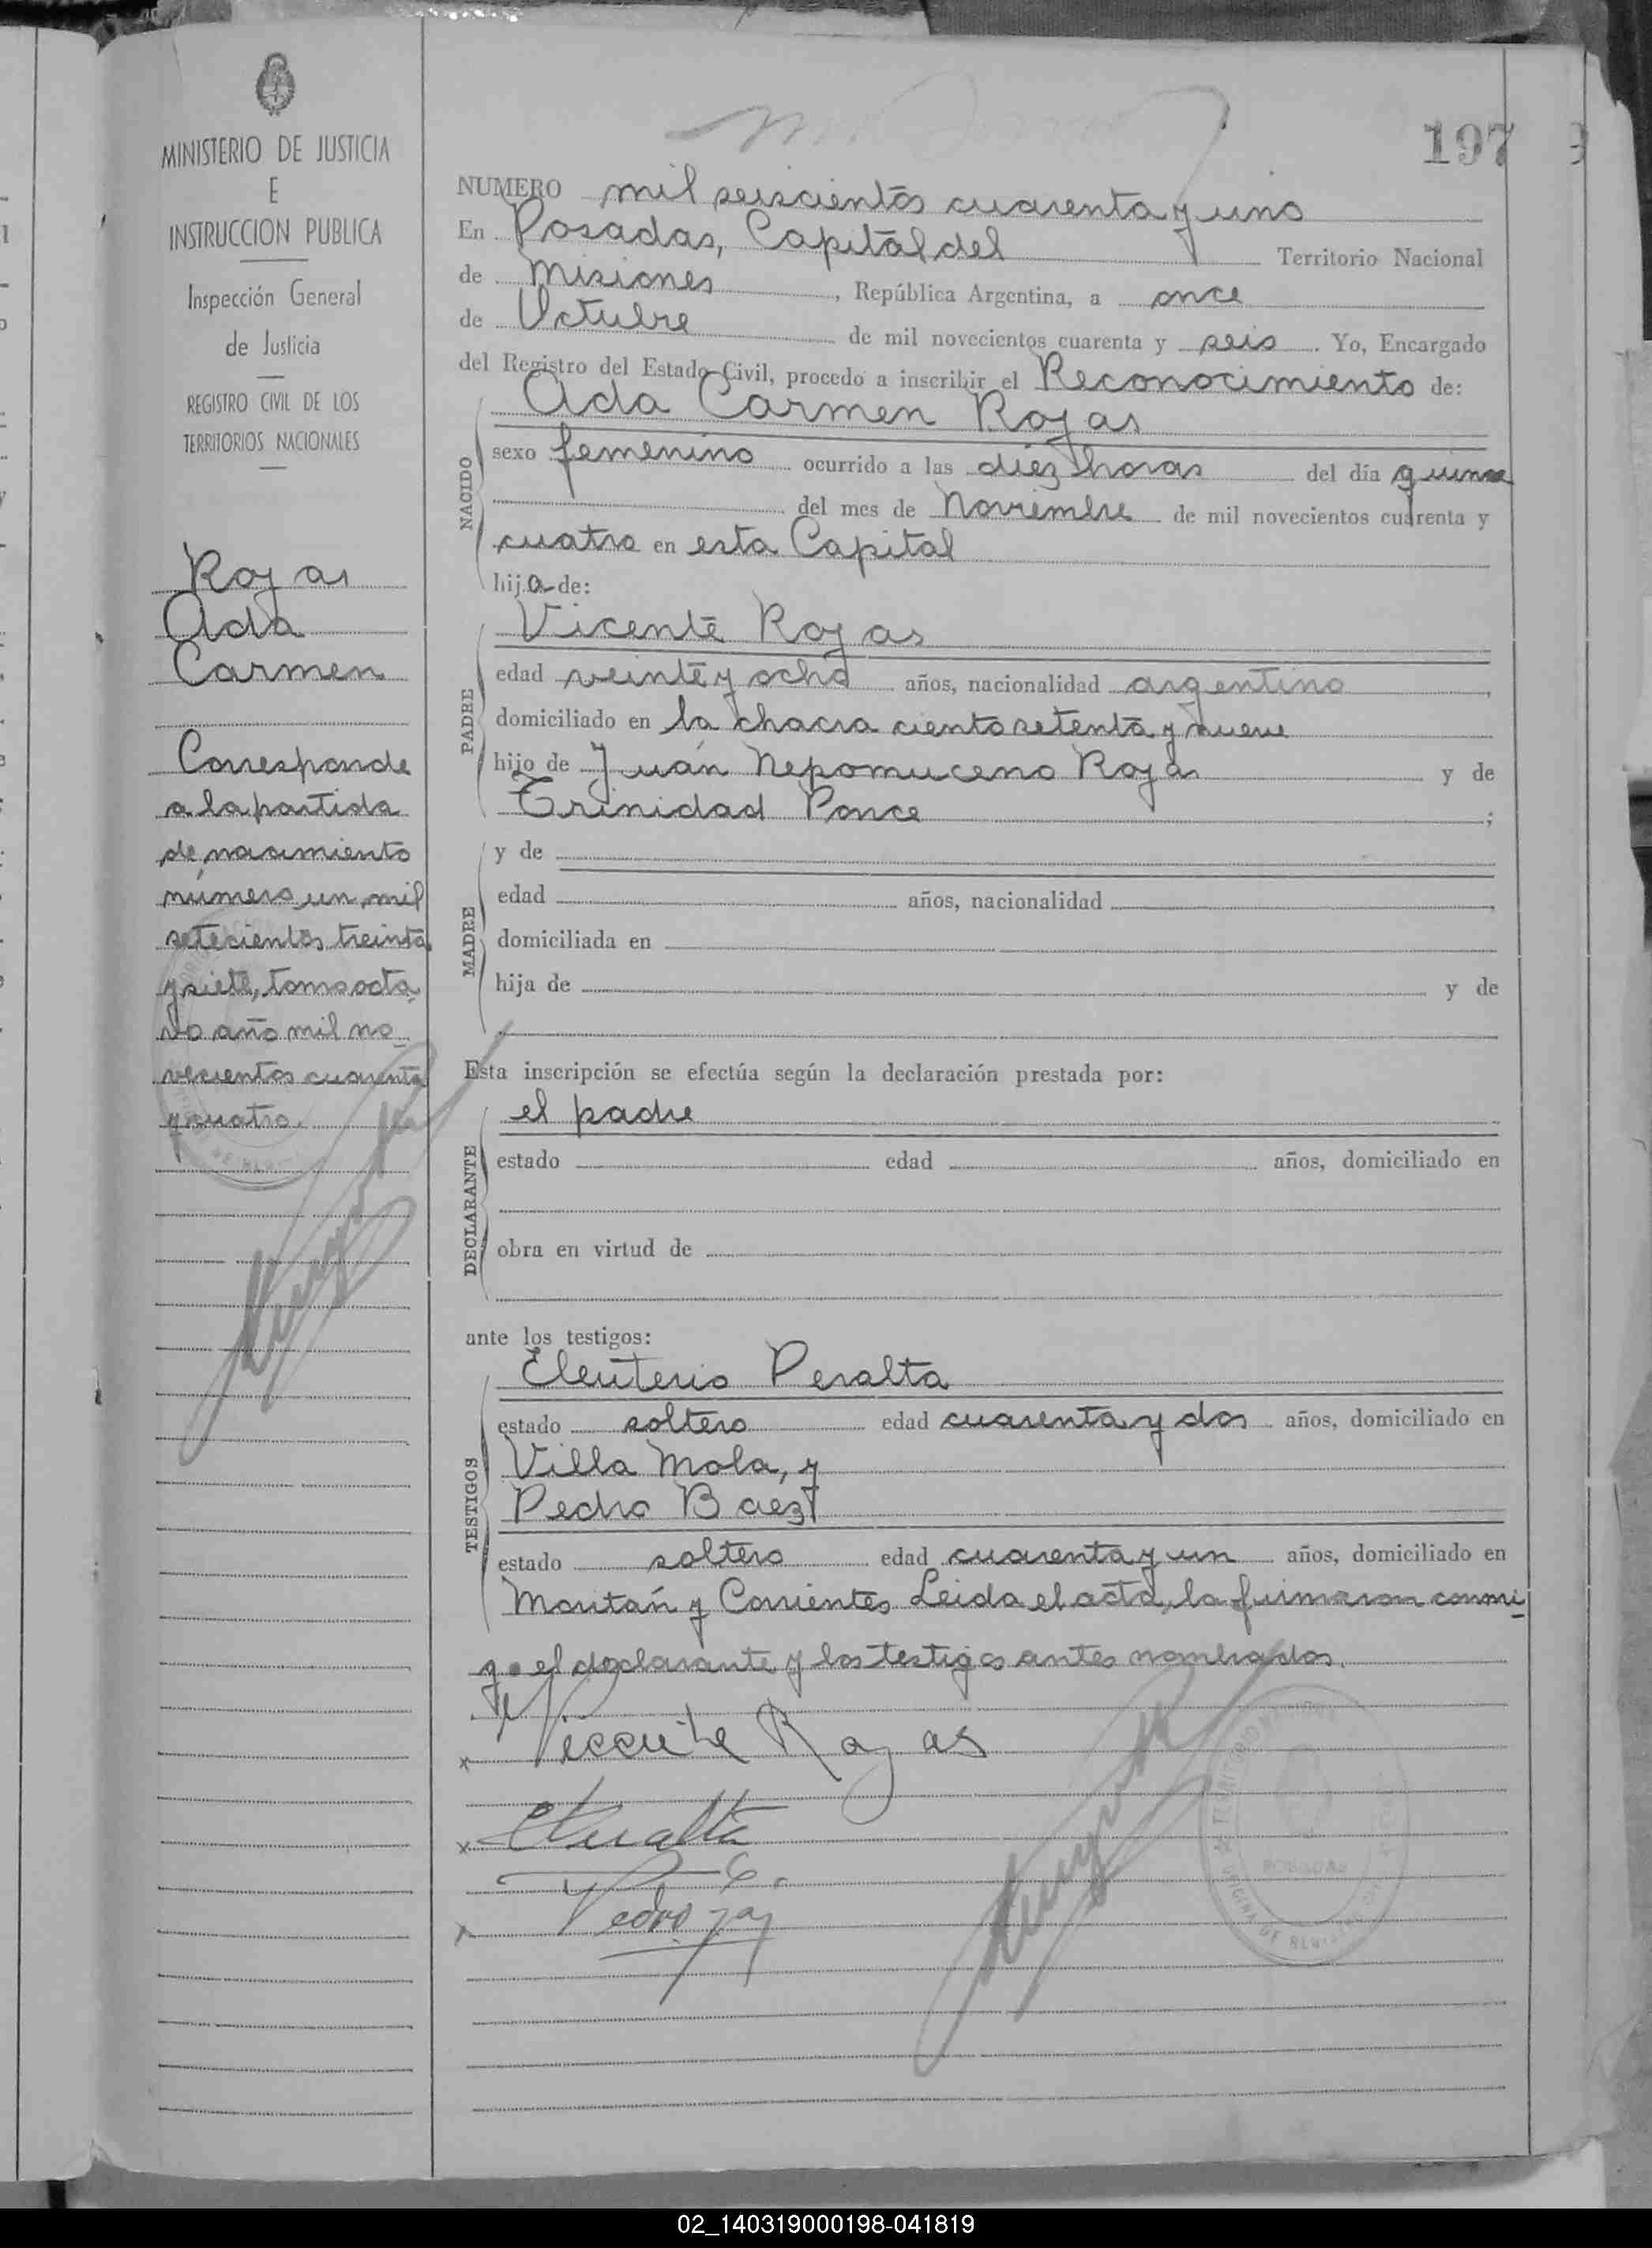 MINISTERIO DE JUSTICIA
E
INSTRUCCION PUBLICA
Inspección General
de Justicia
REGISTRO CIVIL DE LOS
TERRITORIOS NACIONALES
Rojas
Ada
Carmen
Corresponde
a la partida
de nacimiento
número un mil
setecientos treinta
y siete, tomo octa
vo año mil no_
vecientos cuarenta
y cuatro.
197
NUMERO mil seiscientos cuarenta y uno
En Posadas, Capital del Territorio Nacional
de Misiones, República Argentina, a once
de Octubre de mil novecientos cuarenta y seis. Yo, Encargado
del Registro del Estado Civil, procedo a inscribir el Reconocimiento de:
NACIDO
Ada Carmen Rojas
sexo femenino ocurrido a las diez horas del día quince
del mes de Noviembre de mil novecientos cuarenta y
cuatro en esta Capital
hija de:
PADRE
Vicente Rojas
edad veinte y ocho años, nacionalidad argentino,
domiciliado en la chacra ciento setenta y nueve
hijo de Juán Nepomuceno Rojas y de
Trinidad Ponce;
MADRE
y de
edad años, nacionalidad
domiciliada en
hija de y de
Esta inscripción se efectúa según la declaración prestada por:
DECLARANTE
el padre
estado edad años, domiciliado en
obra en virtud de
ante los testigos:
TESTIGOS
Eleuterio Peralta
estado soltero edad cuarenta y dos años, domiciliado en
Villa Mola, y
Pedro Baez
estado soltero edad cuarenta y un años, domiciliado en
Moritán y Corrientes Leida el acta, la firmaron conmi_
go el declarante y los testigos antes nombrados.
x Vicente Rojas
x EPeralta
x Pedro
POSADAS
02_140319000198-041819